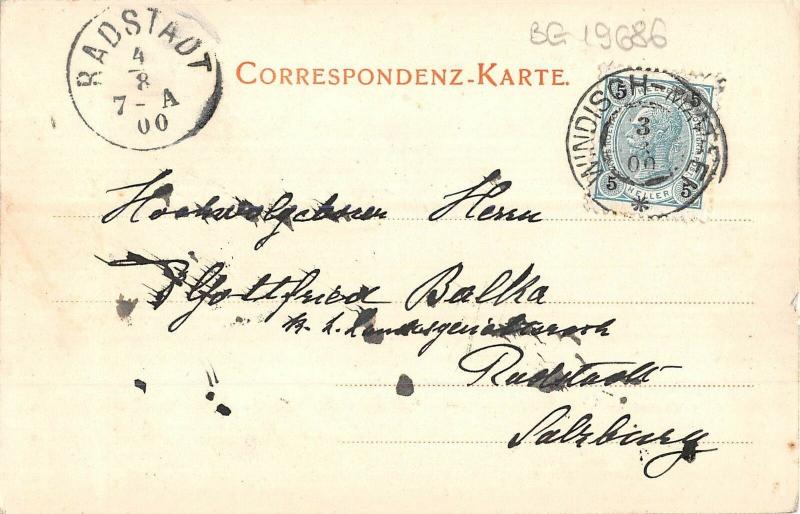 BG 19686
RADSTADT
4
8
7-A
00
CORRESPONDENZ-KARTE.
WINDISCH MATREI
3
8
00
5 5
5 HELLER 5
Hochwolgeboren Herrn
Gottfried Balka
k. k. Landesgerichtsrath
Radstadt
Salzburg